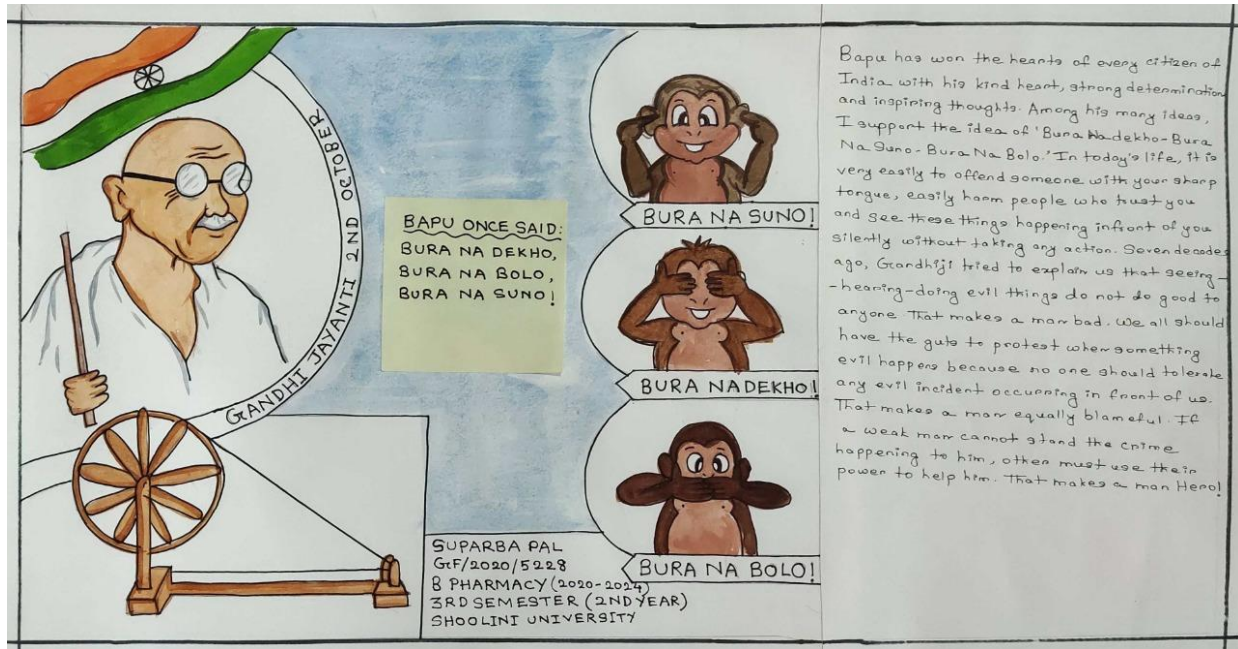 GANDHI JAYANTI 2ND OCTOBER
BAPU ONCE SAID:
BURA NA DEKHO,
BURA NA BOLO,
BURA NA SUNO!
BURA NA SUNO!
BURA NA DEKHO!
BURA NA BOLO!
SUPARBA PAL
GF/2020/5228
B PHARMACY (2020-2024)
3RD SEMESTER (2ND YEAR)
SHOOLINI UNIVERSITY
Bapu has won the hearts of every citizen of
India with his kind heart, strong determination
and inspiring thoughts. Among his many ideas,
I support the idea of 'Bura Na dekho-Bura
Na Suno-Bura Na Bolo.' In today's life, it is
very easily to offend someone with your sharp
tongue, easily harm people who trust you
and see these things happening infront of you
silently without taking any action. Seven decades
ago, Gandhiji tried to explain us that seeing-
-hearing-doing evil things do not do good to
anyone. That makes a man bad. We all should
have the guts to protest when something
evil happens because no one should tolerate
any evil incident occurring in front of us.
That makes a man equally blameful. If
a weak man cannot stand the crime
happening to him, other must use their
power to help him. That makes a man Hero!